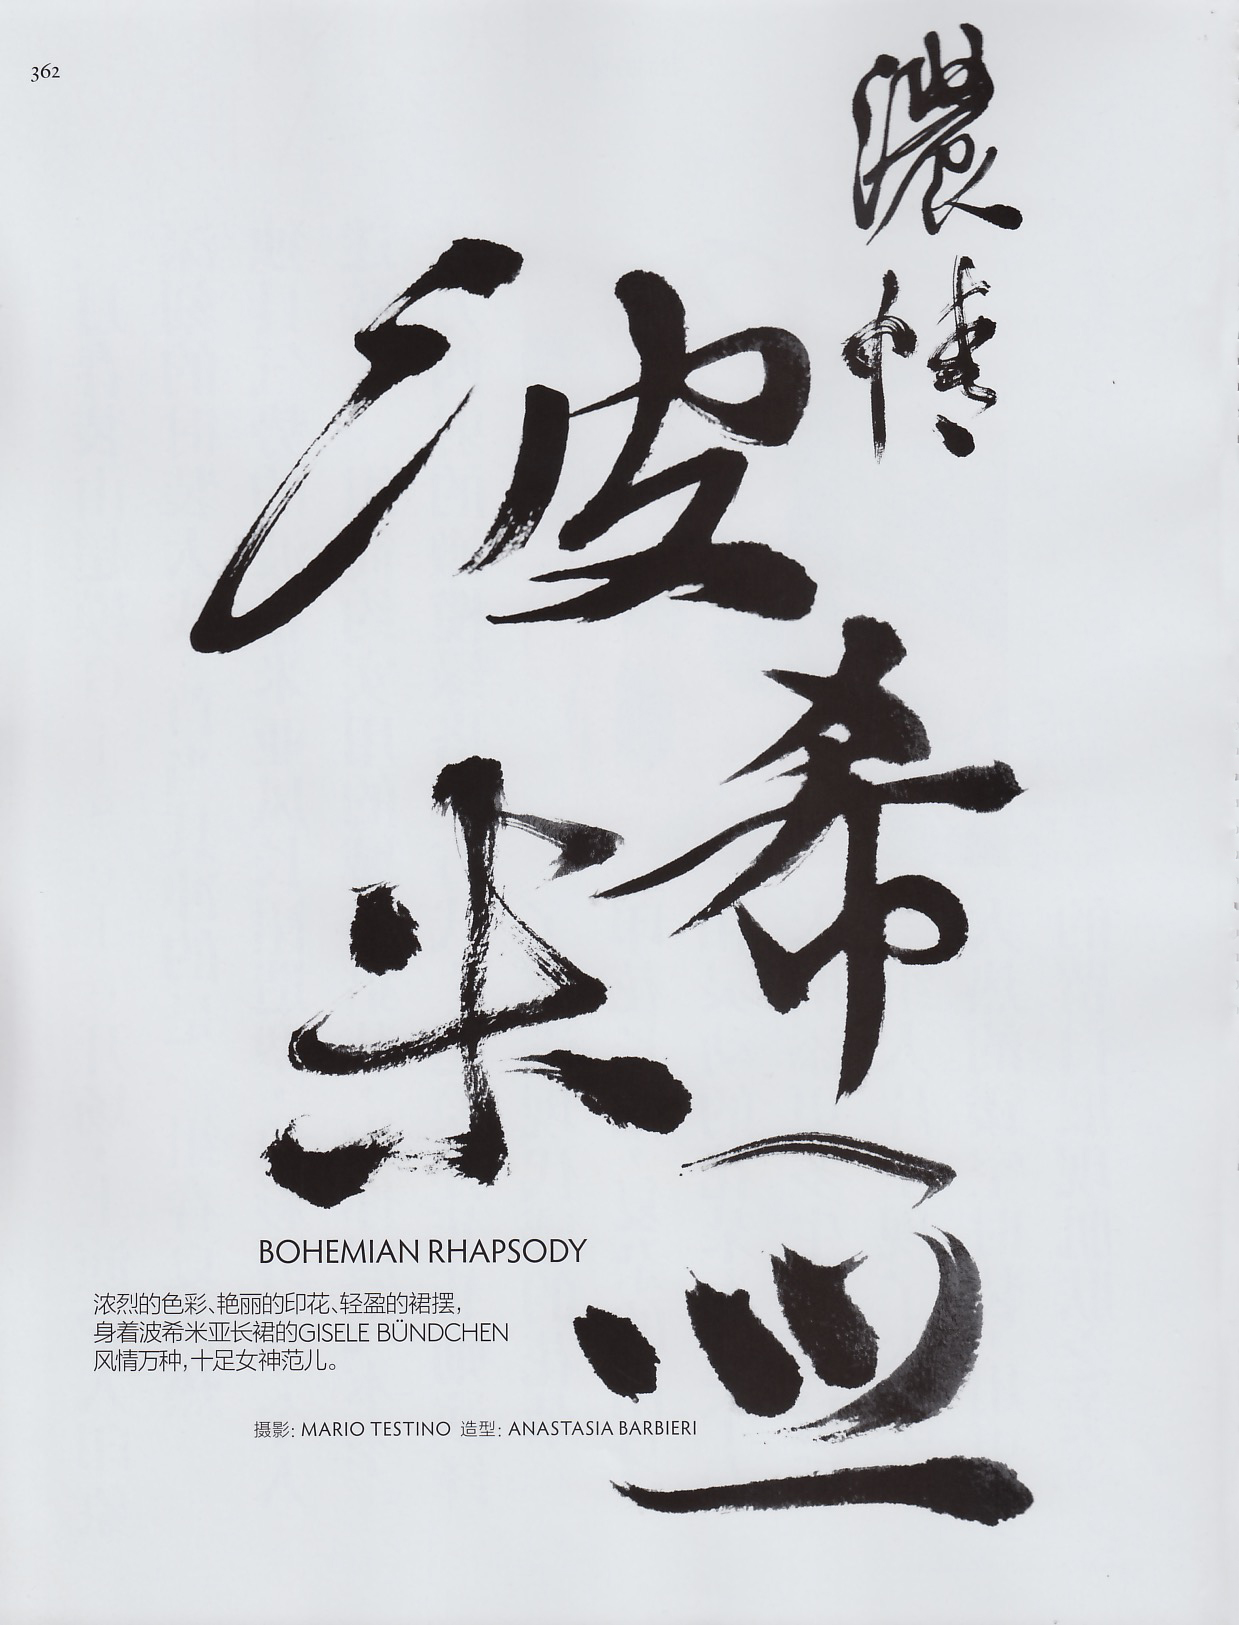 362
濃情
波希米亚
BOHEMIAN RHAPSODY
浓烈的色彩、艳丽的印花、轻盈的裙摆，
身着波希米亚长裙的GISELE BÜNDCHEN
风情万种，十足女神范儿。
摄影: MARIO TESTINO 造型: ANASTASIA BARBIERI